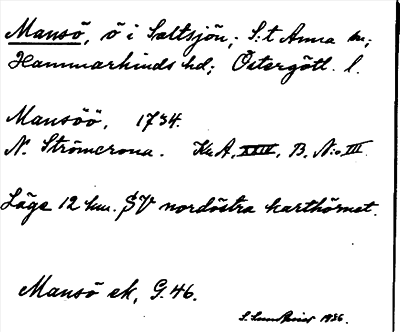 Mansö, ö i Saltsjön; S:t Anna sn;
Hammarkinds hd; Östergötl. l.
Mansöö, 1734.
N. Strömcrona. Kr.A, XXIX, B. N:o III.
Läge 12 km. SV nordöstra karthörnet.
Mansö ek, G. 46.
1936.